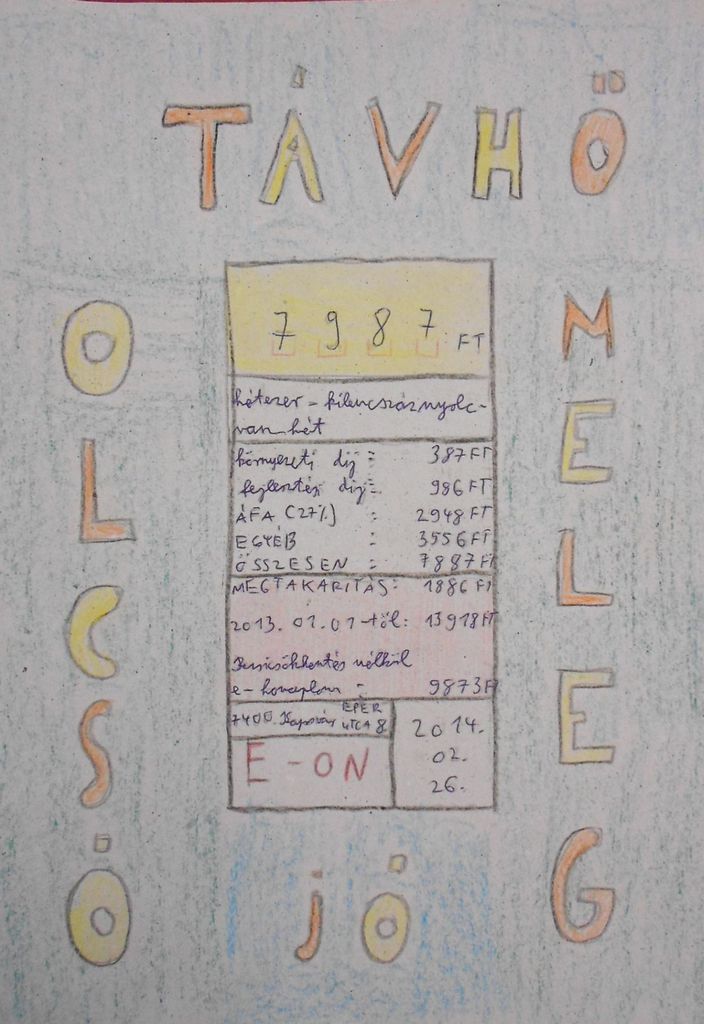 TÁVHŐ
OLCSÓ
MELEG
7987 FT
hétezer-kilencszáznyolc-
van hét
környezeti díj : 387 FT
fejlesztési díj : 986 FT
ÁFA (27%) : 2948 FT
EGYÉB : 3556 FT
ÖSSZESEN : 7887 FT
MEGTAKARÍTÁS: 1886 FT
2013. 01. 01-től: 13918 FT
nélkül
: 9873 FT
7400. Kaposvár EPER
UTCA 8
E-ON
2014.
02.
26.
jó